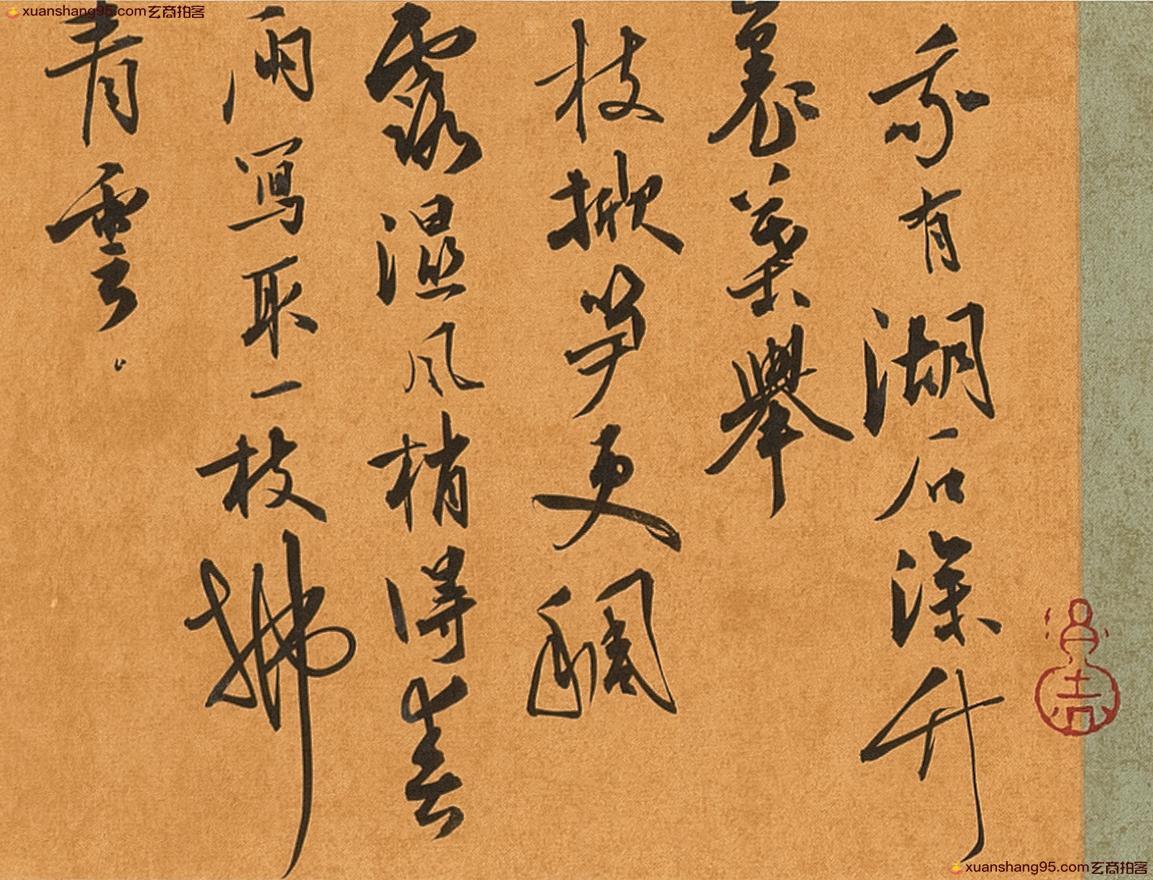 xuanshang95.com玄商拍客
我有湖石深
葉舉
枝掀笋更稠
露濕風梢得春
雨寫取一枝拂
青雲
xuanshang95.com玄商拍客